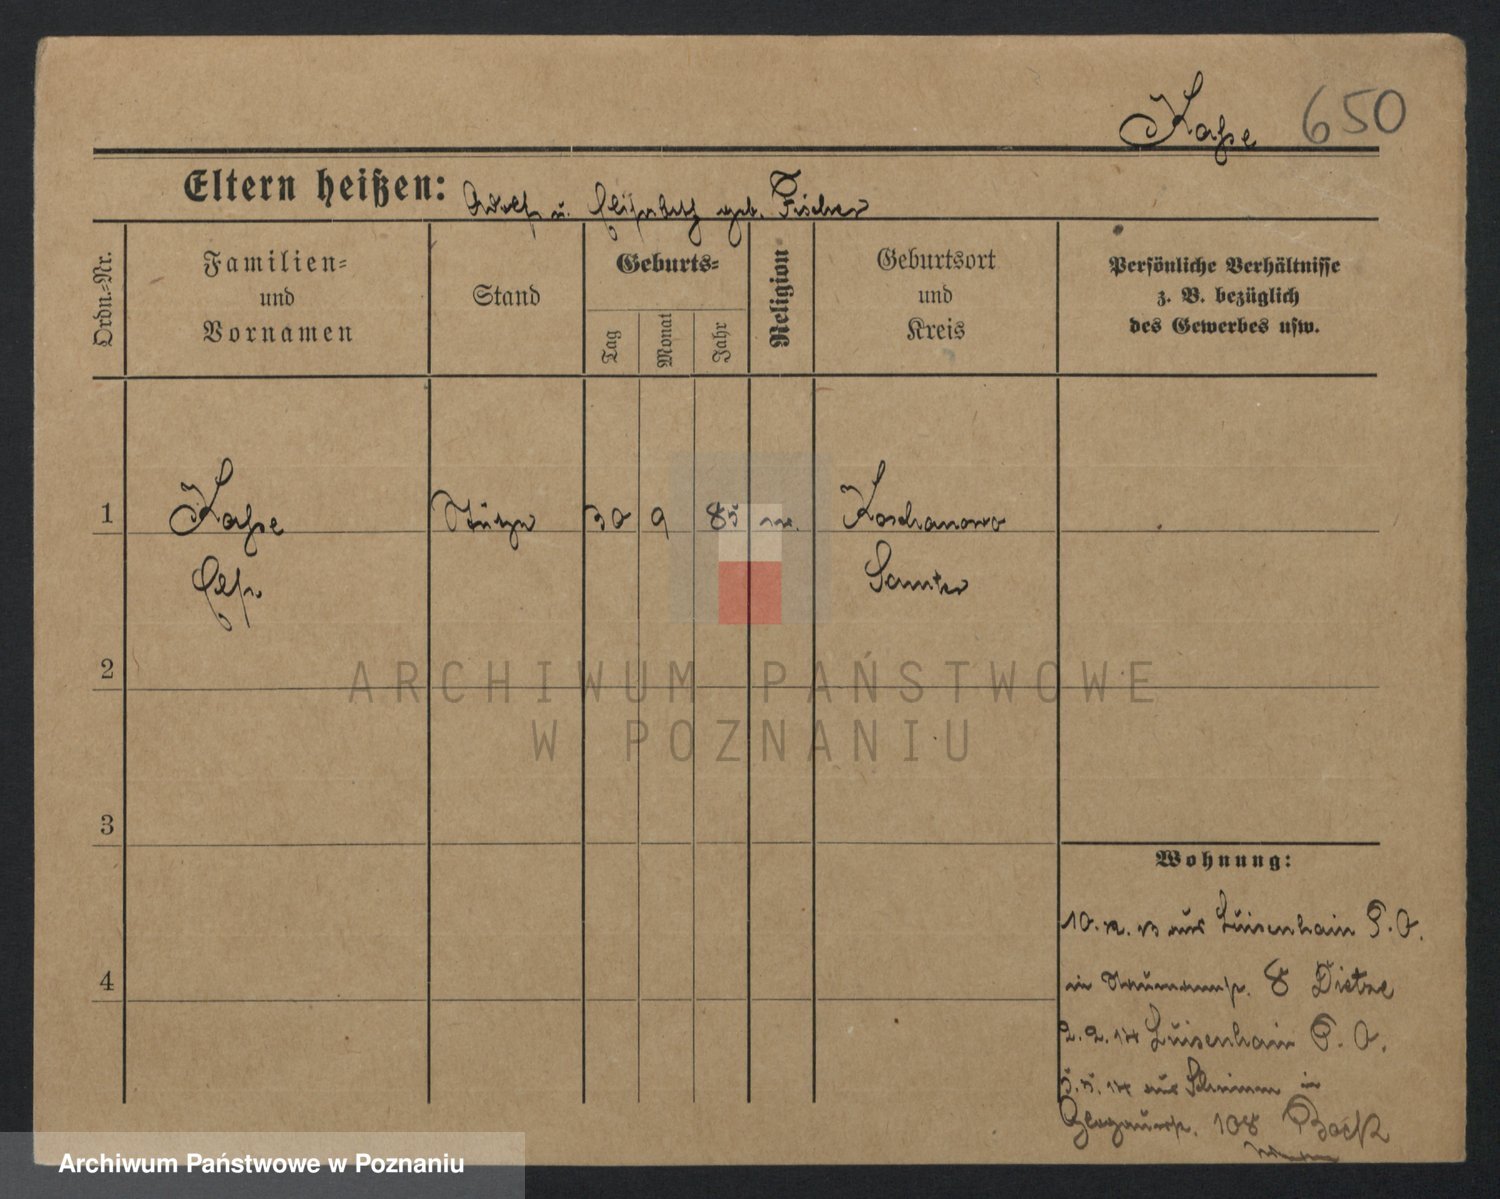 Kaße 650
Eltern heißen: Adolf u. Elisabeth geb. Fischer
Ordn.-Nr.
Familien-
und
Vornamen
Stand
Geburts-
Tag
Monat
Jahr
Religion
Geburtsort
und
Kreis
Persönliche Verhältnisse
z. B. bezüglich
des Gewerbes usw.
1 Kaße Stütze 30 9 85 Koschanowo
Else Samter
2
3
4
Wohnung:
10. 12. 13 aus Luisenhain P. O.
in Naumannstr. 8 Dietze
2. 2. 14 Luisenhain P. O.
5. 5. 14 aus Schrimm in
Glogauerstr. 108 Bock
ARCHIWUM PAŃSTWOWE
W POZNANIU
Archiwum Państwowe w Poznaniu